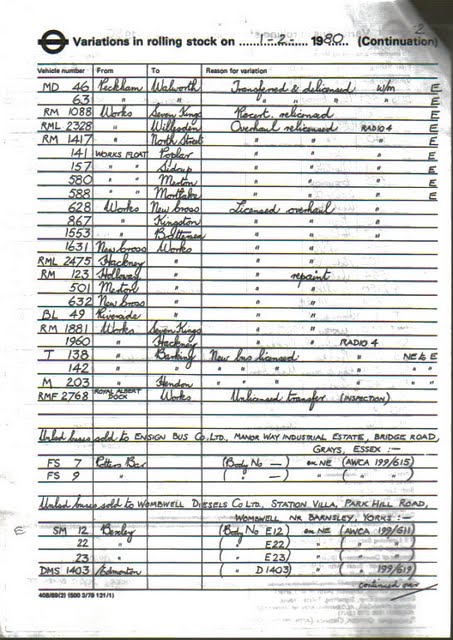 2
Variations in rolling stock on 1-2- 1980 (Continuation)
Vehicle number From To Reason for variation
MD 46 Peckham Walworth Transferred & delicensed w/m E
63 " " " " " " E
RM 1088 Works Seven Kings Recert. relicensed E
RML 2328 " Willesden Overhaul relicensed RADIO 4 E
RM 1417 " North Street " " " E
141 WORKS FLOAT Poplar " " " E
157 " " Sidcup " " " E
580 " " Merton " " " E
588 " " Mortlake " " " E
628 Works New Cross Licensed overhaul "
867 " Kingston " " "
1553 " Battersea " " "
1631 New Cross Works " "
RML 2475 Hackney " " "
RM 123 Holloway " " repaint
501 Merton " " "
632 New Cross " " "
BL 49 Riverside " " "
RM 1881 Works Seven Kings " "
1960 " Hackney " " RADIO 4
T 138 " Barking New bus licensed " NE & E
142 " " " " " " " "
M 203 " Hendon " " " " " "
RMF 2768 ROYAL ALBERT DOCK Works Unlicensed transfer (INSPECTION)
Unlsd buses sold to ENSIGN BUS CO. LTD., MANOR WAY INDUSTRIAL ESTATE, BRIDGE ROAD,
GRAYS, ESSEX :—
FS 7 Potters Bar (Body No —) on NE (AWCA 199/615)
FS 9 " ( " —) " ( " " )
Unlsd buses sold to WOMBWELL DIESELS CO LTD., STATION VILLA, PARK HILL ROAD,
WOMBWELL NR BARNSLEY, YORKS :—
E SM 12 Bexley (Body No E12) on NE (AWCA 199/611)
22 " ( " E22) " ( " " )
23 " ( " E23) " ( " " )
DMS 1403 Edmonton ( " D1403) " ( " 199/619)
continued over
408/89(2) (500 3/79 121/1)